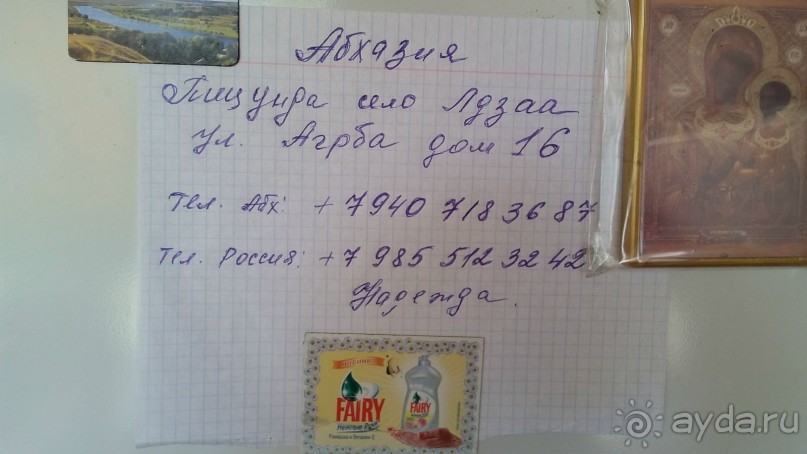 Абхазия
Пицунда село Лдзаа
ул. Агрба дом 16
Тел. Абх: +7940 718 36 87
Тел. Россия: +7 985 512 32 42
Надежда.
FAIRY
Нежные Руки
Ромашка и Витамин Е
FAIRY
ayda.ru